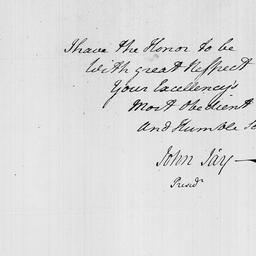 I have the Honor to be
with great Respect
Your Excellency's
Most Obedient
and Humble Se
John Jay—
Presidt